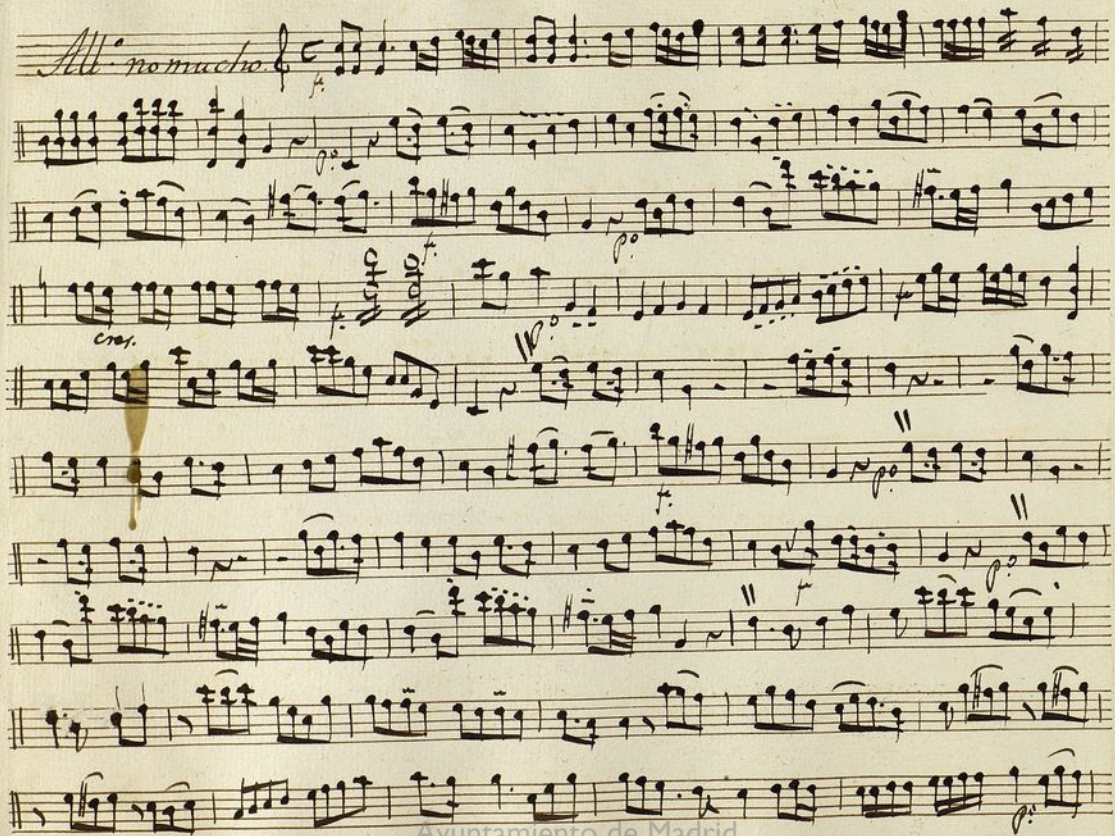 All.º no mucho. f.
p.º
f. p.º
cres. f. f. p.º f
f. p.º
f p.º
Ayuntamiento de Madrid